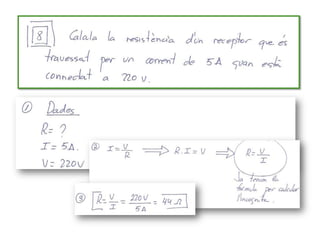 8 Calala la resistència d'un receptor que és
travessat per un corrent de 5A quan està
connectat a 220 V.
① Dades
R= ?
I = 5A.
V= 220V
② I = V/R ⟹ R.I = V ⟹ R = V/I
Ja tenim la
fórmula per calcular
l'incògnita.
③ R = V/I = 220V/5A = 44 Ω